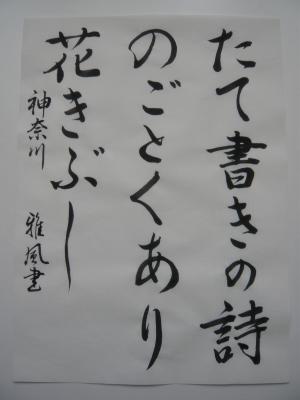 たて書きの詩
のごとくあり
花きぶし
神奈川 雅風書